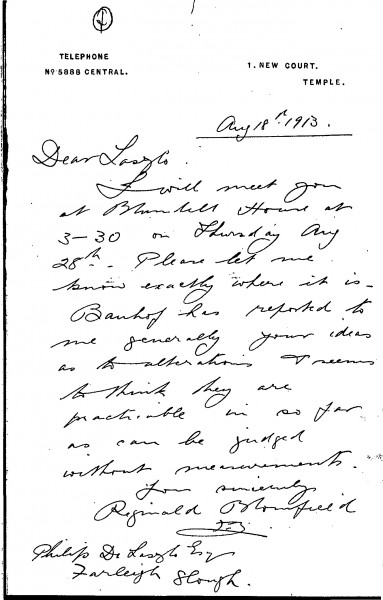 TELEPHONE
Nº 5888 CENTRAL.
1. NEW COURT.
TEMPLE.
Aug 18th 1913.
Dear Laszlo.
I will meet you
at Blundell House at
3-30 on Thursday Aug
28th. Please let me
know exactly where it is -
has reported to
me generally your ideas
as to alterations & seems
to think they are
practicable in so far
as can be judged
without measurements.
Yours sincerely
Reginald Blomfield
Philip De Laszlo Esq
Farleigh Slough.